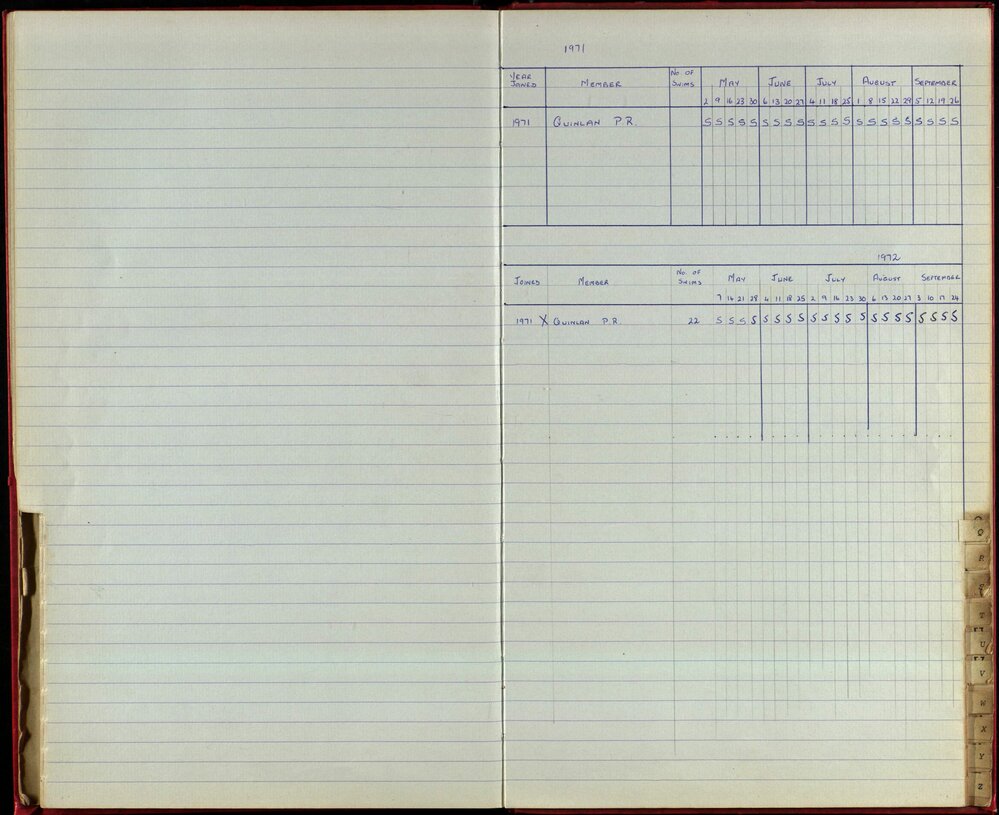 1971
YEAR JOINED MEMBER NO. OF SWIMS MAY JUNE JULY AUGUST SEPTEMBER
2 9 16 23 30 6 13 20 27 4 11 18 25 1 8 15 22 29 5 12 19 26
1971 QUINLAN P.R. S S S S S S S S S S S S S S S S S S S S S S
1972
JOINED MEMBER NO. OF SWIMS MAY JUNE JULY AUGUST SEPTEMBER
7 14 21 28 4 11 18 25 2 9 16 23 30 6 13 20 27 3 10 17 24
1971 X QUINLAN P.R. 22 S S S S S S S S S S S S S S S S S S S S S
Q
R
S
T
U
V
W
X
Y
Z